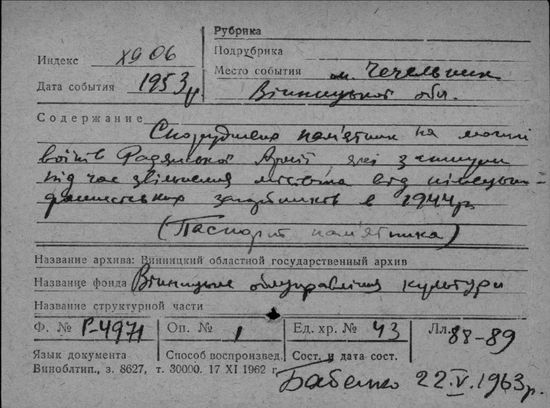 Рубрика
Индекс XI906 Подрубрика
Дата события 1953 р Место события м. Чечельник
Вінницької обл.
Содержание Споруджено пам'ятник на могилі
воїнів Радянської Армії які загинули
під час звільнення містечка від німецько-
фашистських загарбників в 1944 р.
(Паспорт пам'ятника)
Название архива: Винницкий областной государственный архив
Название фонда Вінницьке облуправління культури
Название структурной части
Ф. № Р-4971 Оп. № 1 Ед. хр. № 43 Лл. 88-89
Язык документа Способ воспроизвед. Сост. и дата сост.
Виноблтип., з. 8627, т. 30000. 17 XI 1962 г. Бабенко 22.V.1963 р.